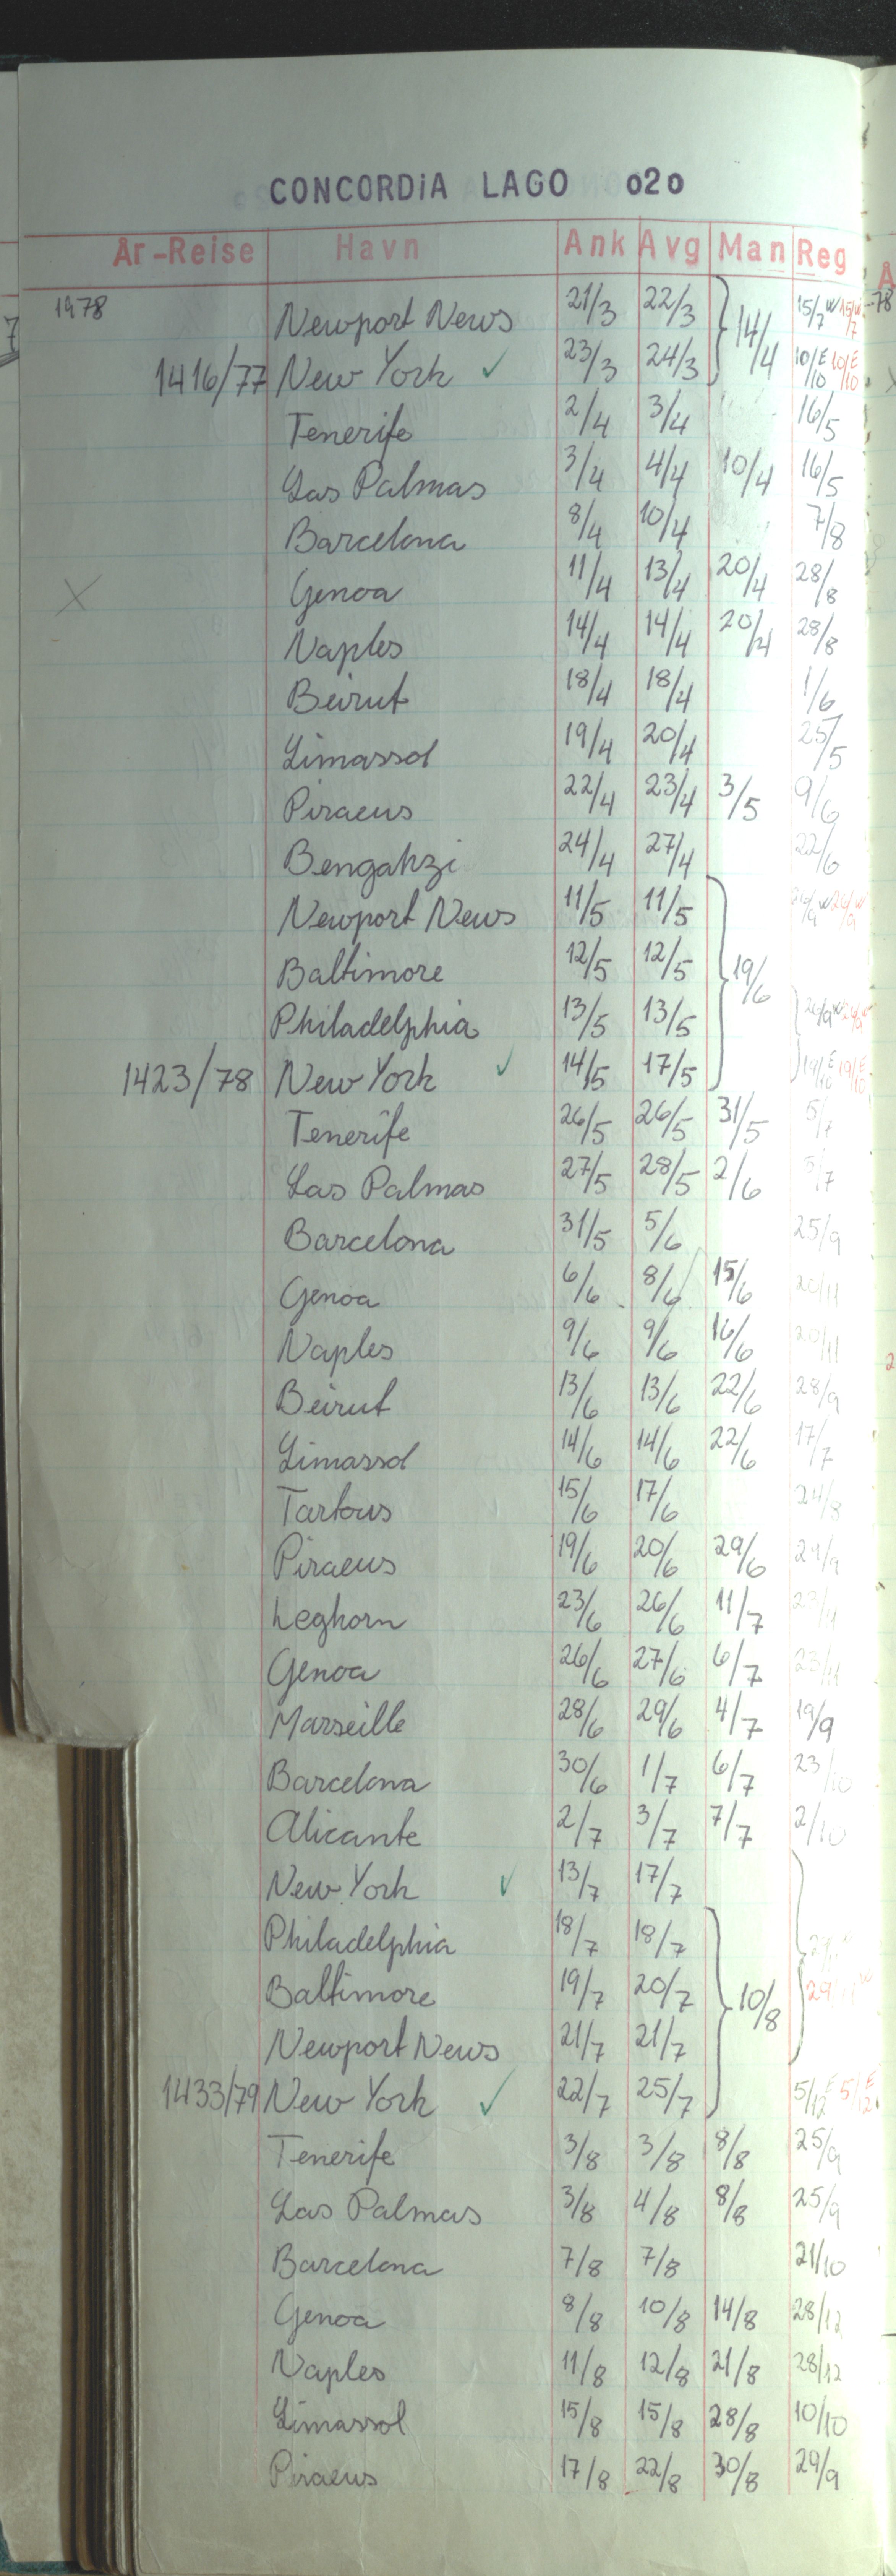 CONCORDiA LAGO 020
År-Reise Havn Ank Avg Man Reg
1978 Newport News 21/3 22/3 14/4 15/7 W 15/7 W
1416/77 New York ✓ 23/3 24/3 10/10 E 10/10 E
Tenerife 2/4 3/4 16/5
Las Palmas 3/4 4/4 10/4 16/5
Barcelona 8/4 10/4 7/8
X Genoa 11/4 13/4 20/4 28/8
Naples 14/4 14/4 20/4 28/8
Beirut 18/4 18/4 1/6
Limassol 19/4 20/4 25/5
Piraeus 22/4 23/4 3/5 9/6
Bengahzi 24/4 27/4 22/6
Newport News 11/5 11/5
Baltimore 12/5 12/5 19/6
Philadelphia 13/5 13/5 26/9 W 26/9 W
1423/78 New York ✓ 14/5 17/5 19/10 E 19/10 E
Tenerife 26/5 26/5 31/5 5/7
Las Palmas 27/5 28/5 2/6 5/7
Barcelona 31/5 5/6 25/9
Genoa 6/6 8/6 15/6 20/11
Naples 9/6 9/6 16/6 20/11
Beirut 13/6 13/6 22/6 28/9
Limassol 14/6 14/6 22/6 17/7
Tartous 15/6 17/6 24/8
Piraeus 19/6 20/6 29/6 29/9
Leghorn 23/6 26/6 11/7
Genoa 26/6 27/6 6/7 23/11
Marseille 28/6 29/6 4/7 19/9
Barcelona 30/6 1/7 6/7 23/10
Alicante 2/7 3/7 7/7 2/10
New York ✓ 13/7 17/7
Philadelphia 18/7 18/7
Baltimore 19/7 20/7 10/8
Newport News 21/7 21/7
1433/79 New York ✓ 22/7 25/7 5/12 E 5/12 E
Tenerife 3/8 3/8 8/8 25/9
Las Palmas 3/8 4/8 8/8 25/9
Barcelona 7/8 7/8 21/10
Genoa 8/8 10/8 14/8 28/12
Naples 11/8 12/8 21/8 28/12
Limassol 15/8 15/8 28/8 10/10
Piraeus 17/8 22/8 30/8 29/9